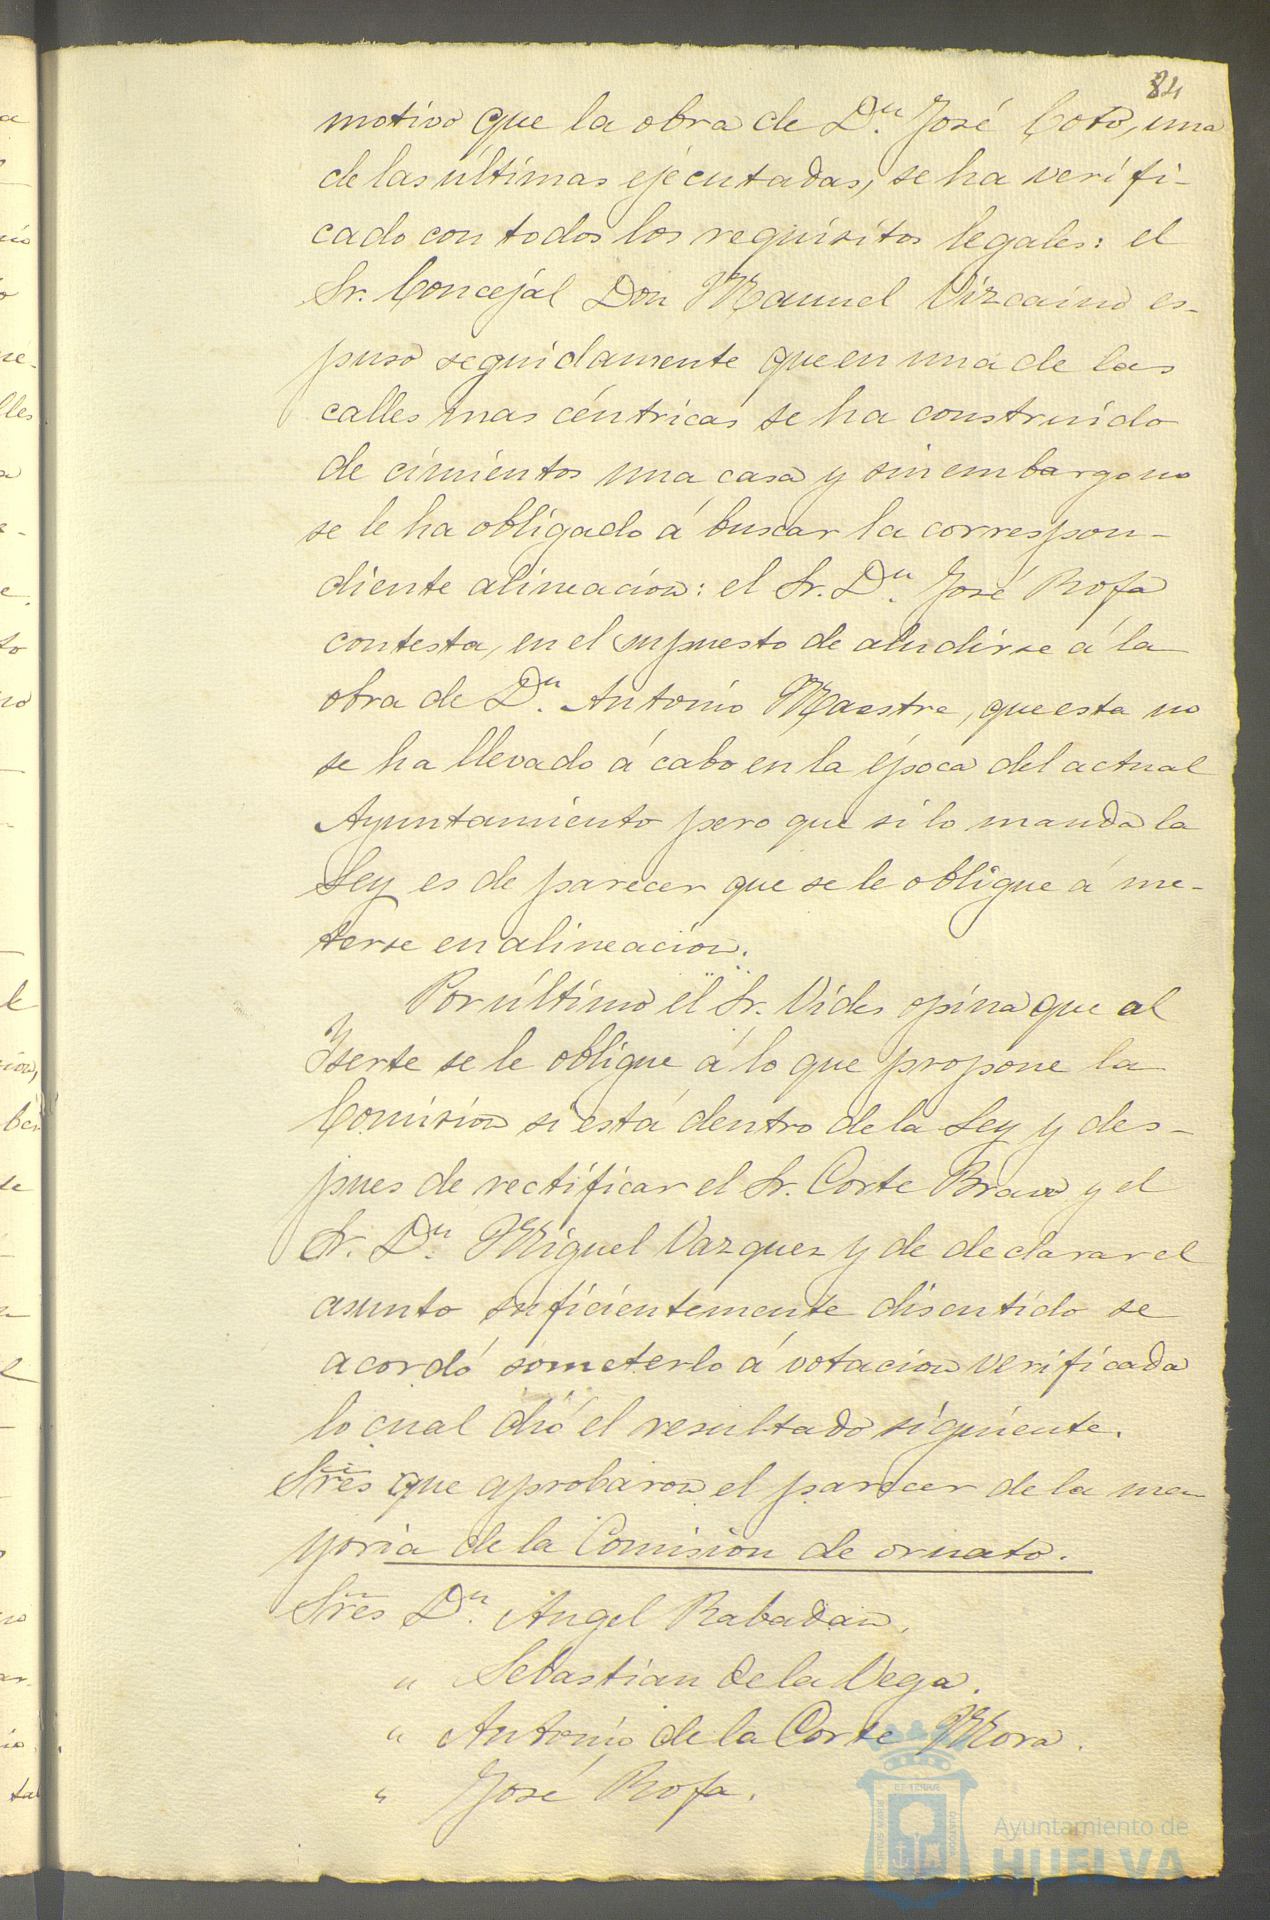 84
motivo que la obra de D.n José Coto, una
de las últimas ejecutadas, se ha verifi-
cado con todos los requisitos legales: el
Sr. Concejal Don Manuel Vizcaino es-
puso seguidamente que en una de las
calles mas céntricas se ha construido
de cimientos una casa y sin embargo no
se le ha obligado á buscar la correspon-
diente alineacion: el Sr. D.n José Rofa
contesta, en el supuesto de aludirse á la
obra de D.n Antonio Maestre, que esta no
se ha llevado á cabo en la época del actual
Ayuntamiento pero que si lo manda la
Ley es de parecer que se le obligue á me-
terse en alineacion.
Por último el Sr. Vides opina que al
Yserte se le obligue á lo que propone la
Comision si está dentro de la Ley y des-
pues de rectificar el Sr. Corte Bravo y el
Sr. D.n Miguel Vazquez y de declarar el
asunto suficientemente discutido se
acordó someterlo á votacion verificada
lo cual dió el resultado siguiente.
Sres que aprobaron el parecer de la ma-
yoria de la Comision de ornato.
Sres D.n Angel Rabadan.
" Sebastian de la Vega.
" Antonio de la Corte Mora.
" José Rofa.
Ayuntamiento de
HUELVA